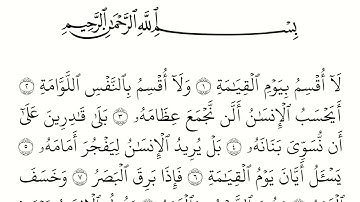 بِسْمِ ٱللَّهِ ٱلرَّحْمَٰنِ ٱلرَّحِيمِ
لَآ أُقْسِمُ بِيَوْمِ ٱلْقِيَٰمَةِ ١ وَلَآ أُقْسِمُ بِٱلنَّفْسِ ٱللَّوَّامَةِ ٢
أَيَحْسَبُ ٱلْإِنسَٰنُ أَلَّن نَّجْمَعَ عِظَامَهُۥ ٣ بَلَىٰ قَٰدِرِينَ عَلَىٰٓ
أَن نُّسَوِّىَ بَنَانَهُۥ ٤ بَلْ يُرِيدُ ٱلْإِنسَٰنُ لِيَفْجُرَ أَمَامَهُۥ ٥
يَسْـَٔلُ أَيَّانَ يَوْمُ ٱلْقِيَٰمَةِ ٦ فَإِذَا بَرِقَ ٱلْبَصَرُ ٧ وَخَسَفَ